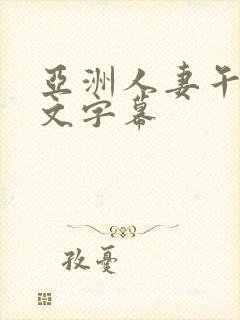 亞洲人妻午
文字幕
孜憂